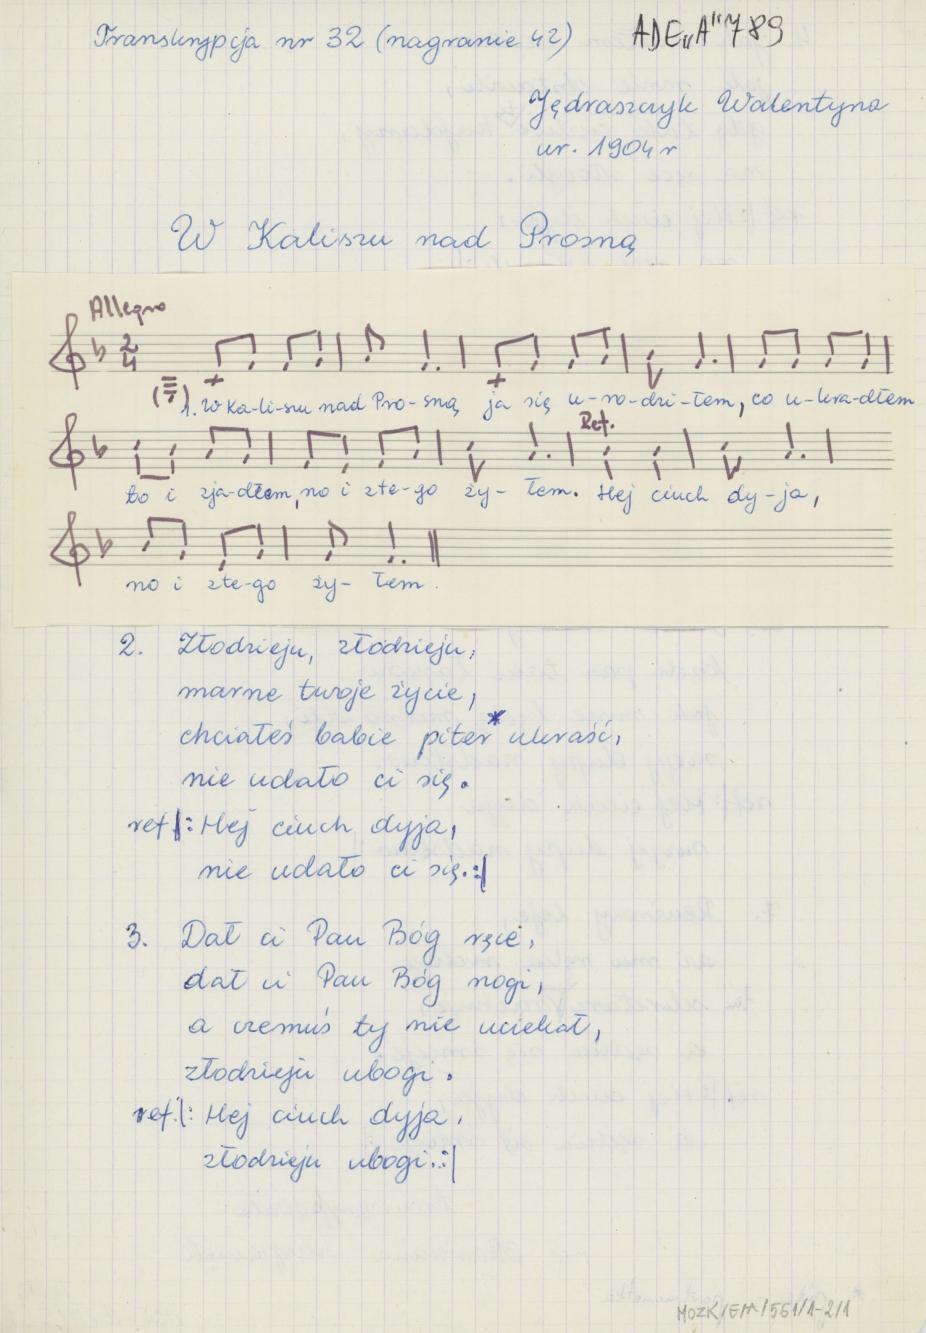 Transkrypcja nr 32 (nagranie 42)
ADE „A" 789
Jędraszczyk Walentyna
ur. 1904 r
W Kaliszu nad Prosną
Allegro
2
4
1. W Ka-li-szu nad Pro-sną ja się u-ro-dzi-łem, co u-kra-dłem
to i zja-dłem, no i zte-go ży-łem. Hej ciuch dy-ja,
Ref.
no i zte-go ży-łem.
2. Złodzieju, złodzieju,
marne twoje życie,
chciałeś babie piter* ukraść,
nie udało ci się.
ref|: Hej ciuch dyja,
nie udało ci się. :|
3. Dał ci Pan Bóg ręce,
dał ci Pan Bóg nogi,
a czemuś ty nie uciekał,
złodzieju ubogi.
ref.|: Hej ciuch dyja,
złodzieju ubogi. :|
MOZK/EM/561/1-2/1